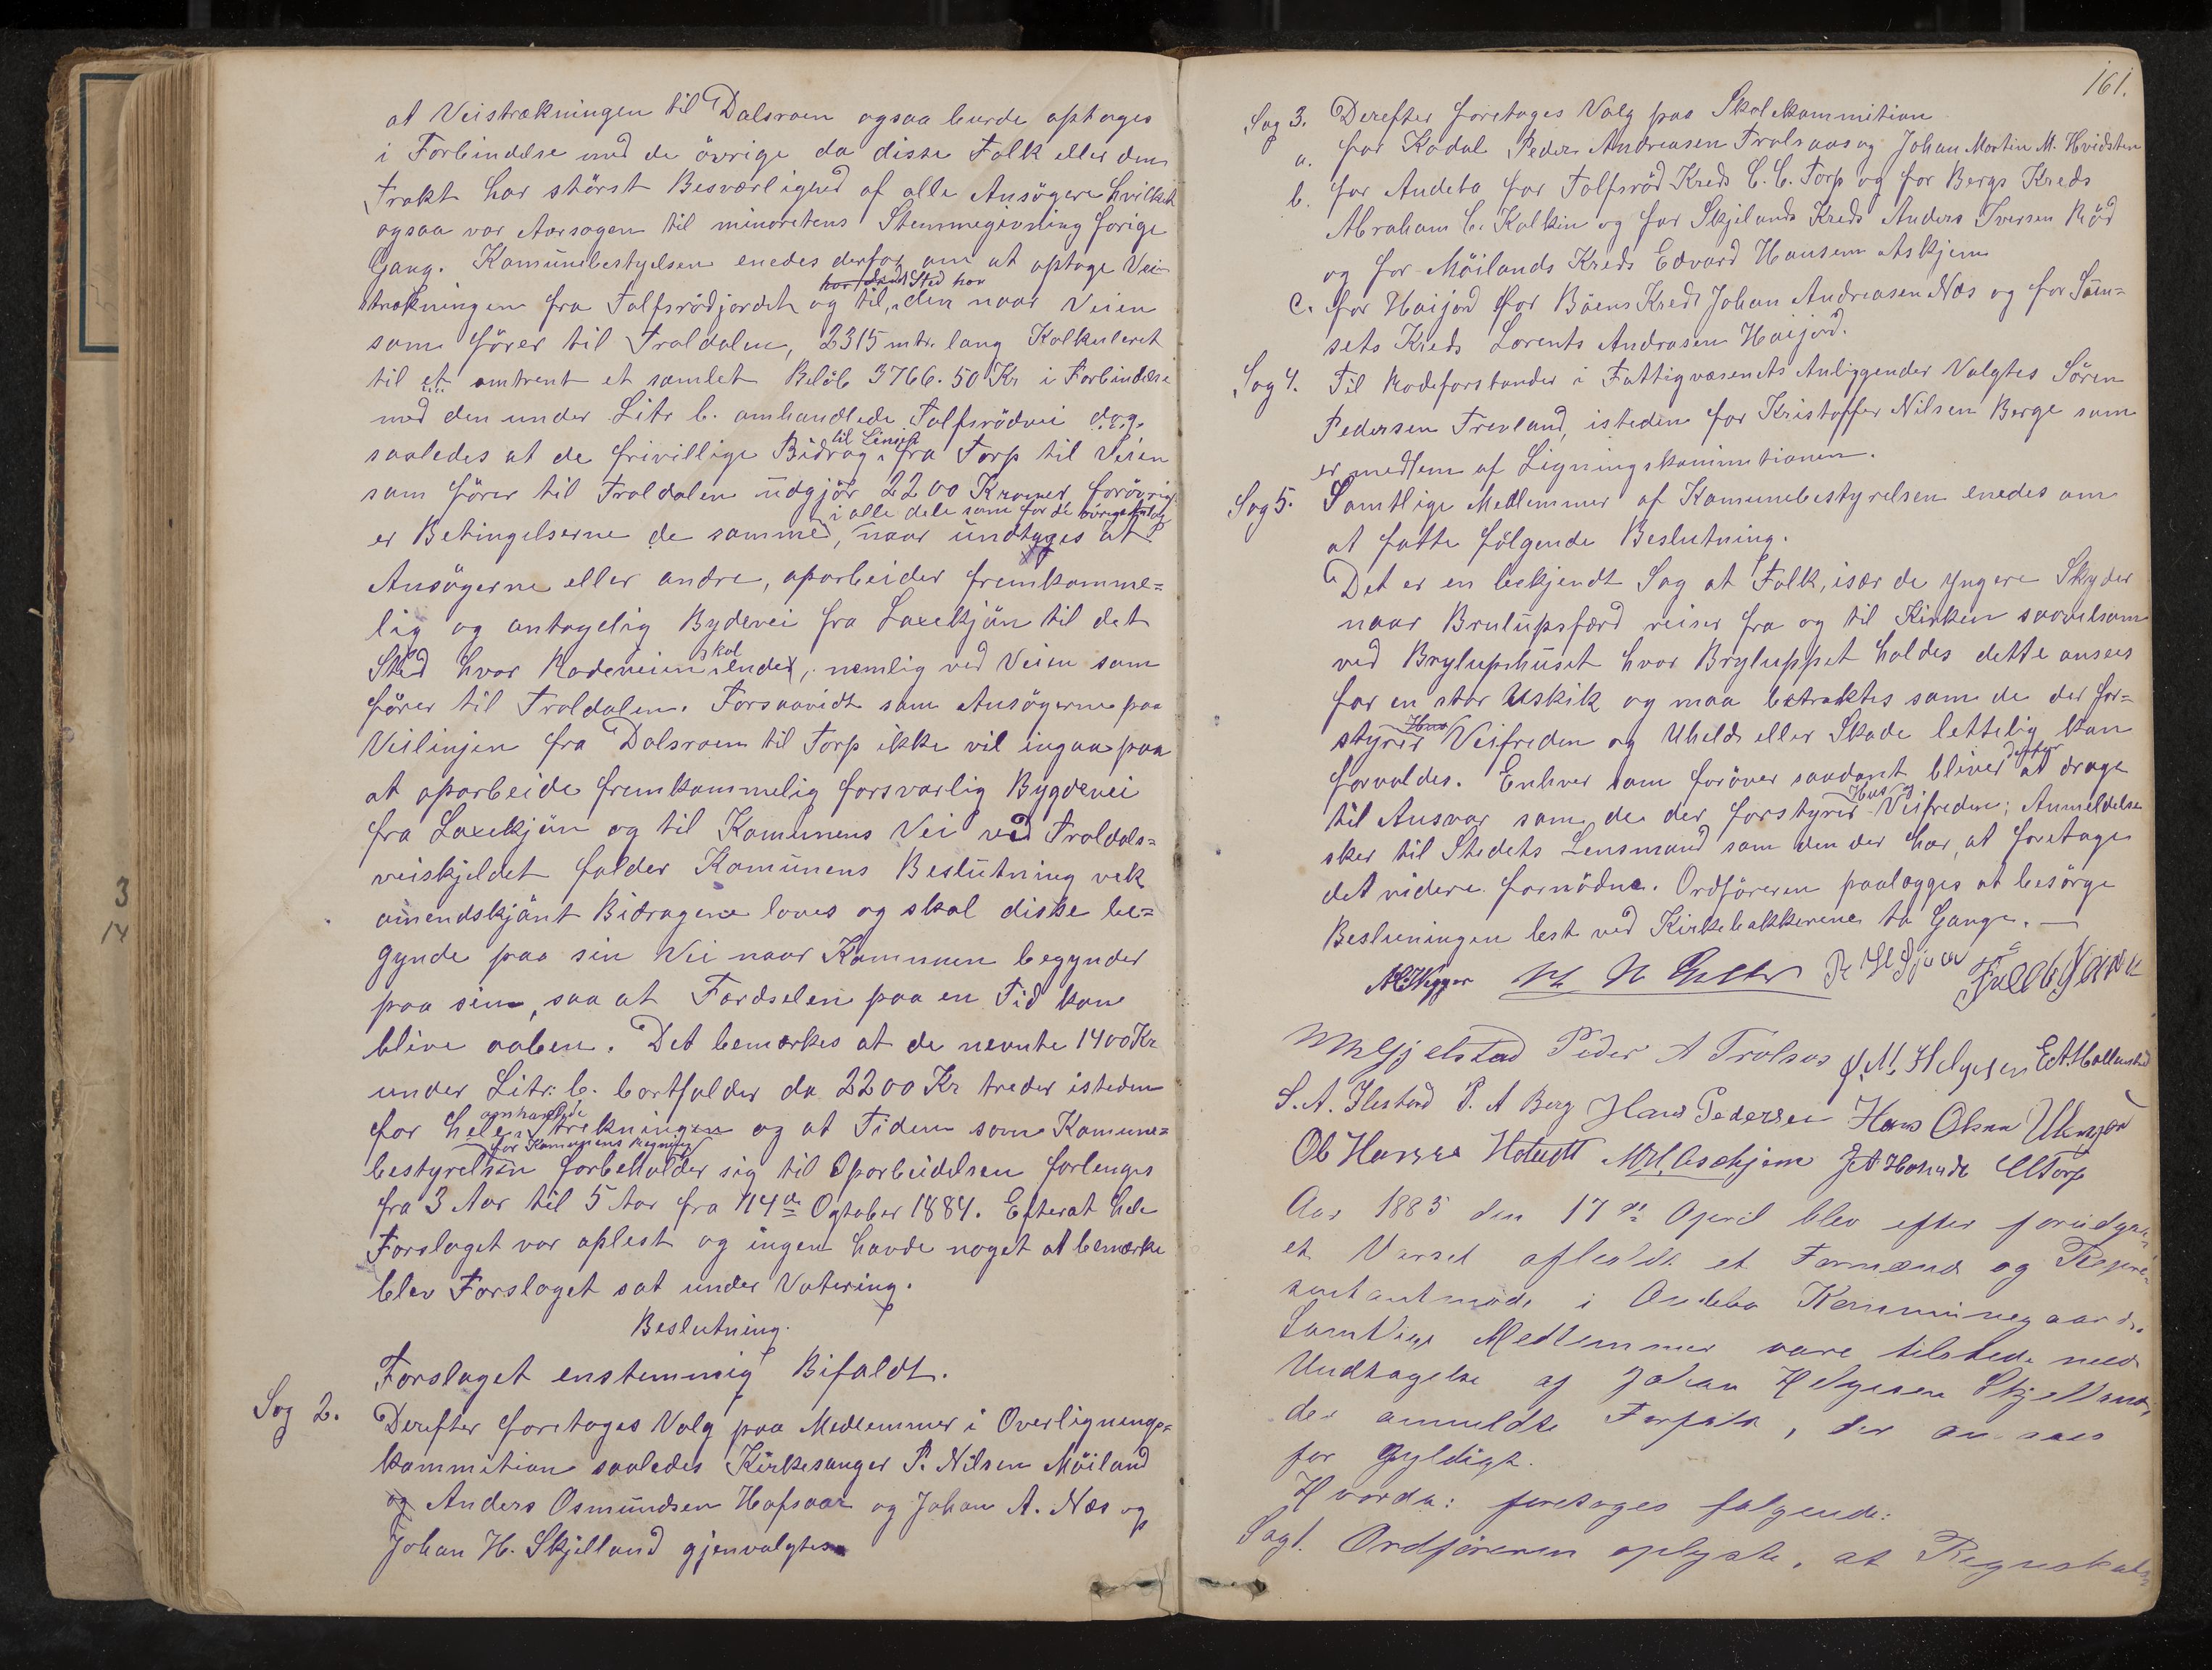 at Veistrækningen til Dalsroen ogsaa burde optages
i Forbindelse med de övrige da disse Folk eller den
Trakt har störst Besværlighed af alle Ansögere hvilket
ogsaa var Aarsagen til minoretens Stemmegivning forige
Gang. Kamunebestyelsen enedes derfor om at optage Vei
trækningen fra Tolfsrödjordet og til, den naar Veien
som förer til Traldalen, 2315 mtr. lang Kalkuleret
til et omtrent et samlet Belöb 3766.50 Kr i Forbindelse
med den under Litr b. omhandlede Tolfsrödvei dog
saaledes at de frivillige Bidrag til Linien fra Torp til Veien
som förer til Traldalen udgjör 2200 Kroner, forövrigt
i alle dele som for de övrige
er Betingelserne de samme, naar undtages at
Ansögerne eller andre, oparbeider fremkomme=
lig og antagelig Bydevei fra Laxekjön til det
Sted hvor Rodeveien skal ende, nemlig ved Veien som
förer til Traldalen. Forsaavidt som Ansögerne paa
Veilinjen fra Dalsroen til Torp ikke vil ingaa paa
at oparbeide fremkommelig forsvarlig Bygdevei
fra Laxekjön og til Kamunens Vei ved Traldals=
veiskjeldet falder Kamunens Beslutning vek
omendskjönt Bidragene loves og skal disse be=
gynde paa sin Vei naar Kamunen begynder
paa sin, saa at Færdselen paa en Tid kan
blive aaben. Det bemærkes at de nevnte 1400 Kr
under Litr: b. bortfalder da 2200 Kr treder isteden
for hele omhandlede Strekningen og at Tiden som Kamune=
for Kamunens Regning
bestyrelsen forbeholder sig til Oparbeidelsen forlenges
fra 3 Aar til 5 Aar fra 14de Ogtober 1884. Efterat hele
Forslaget var oplest og ingen havde noget at bemærke
blev Forslaget sat under Votering.
Beslutning.
Forslaget enstemmig Bifaldt.
Sag 2. Derefter foretages Valg paa Medlemmer i Overlignings=
kammition saaledes Kirkesanger P. Nilsen Möiland
og Anders Osmundsen Hafsaas og Johan A. Næs og
Johan H. Skjelland gjenvalgtes
161.
Sag 3. Derefter foretages Valg paa Skolekammition
a. for Kodal Peder Andreasen Trolsaas og Johan Martin M. Hvidsten
b. for Andebo for Tolfsröd Kreds C. C. Torp og for Bergs Kreds
Abraham C. Kolkin og for Skjelands Kreds Anders Iversen Röd
og for Möilands Kreds Edvard Hansen Askjem
c. for Haijord for Böens Kreds Johan Andreasen Næs og for Süm=
sets Kreds Lorents Andrasen Haijord.
Sag 4. Til Rodeforstander i Fattigvæsenets Anliggender Valgtes Sören
Pedersen Trevland, isteden for Kristoffer Nilsen Berge som
er medlem af Ligningskammitionen.
Sag 5. Samtlige Medlemmer af Kamunebestyrelsen enedes om
at fatte fölgende Beslutning.
Det er en bekjendt Sag at Folk, især de yngere Skyder
naar Brulupsfærd reiser fra og til Kirken saavelsom
ved Bryluphuset hvor Bryluppet holdes dette ansees
for en stor Uskik og maa betraktes som de der for=
styrer Veifreden og Uheld eller Skade lettelig kan
forvoldes. Enhver som foröver saadant bliver derfor at drage
til Ansvar som de der forstyrer Hus og Veifreden; Anmeldelse
sker til Stedets Lensmand som den der har at foretage
det videre fornödne. Ordföreren paalægges at besörge
Besluningen lest ved Kirkebakkerne to Gange. —
Gjelstad Peder A Trolsos J. M. Helgesen
S. A. Ilestad P. A Berg Hans Pedersen Hans Olsen
Ole Hansen Askjem CCTorp
Aar 1885 den 17de April blev efter forudgaa-
et Varsel afholdt et Formænd og Repræ-
sentantmöde i Andebo Kommunegaard.
Samtlige Medlemmer vare tilstede med
Undtagelse af Johan Helgesen Skjelland,
der anmeldte Forfald, der ansaes
for gyldigt.
Hvorda: foretoges fölgende:
Sag 1. Ordföreren oplyste, at Regnskabs